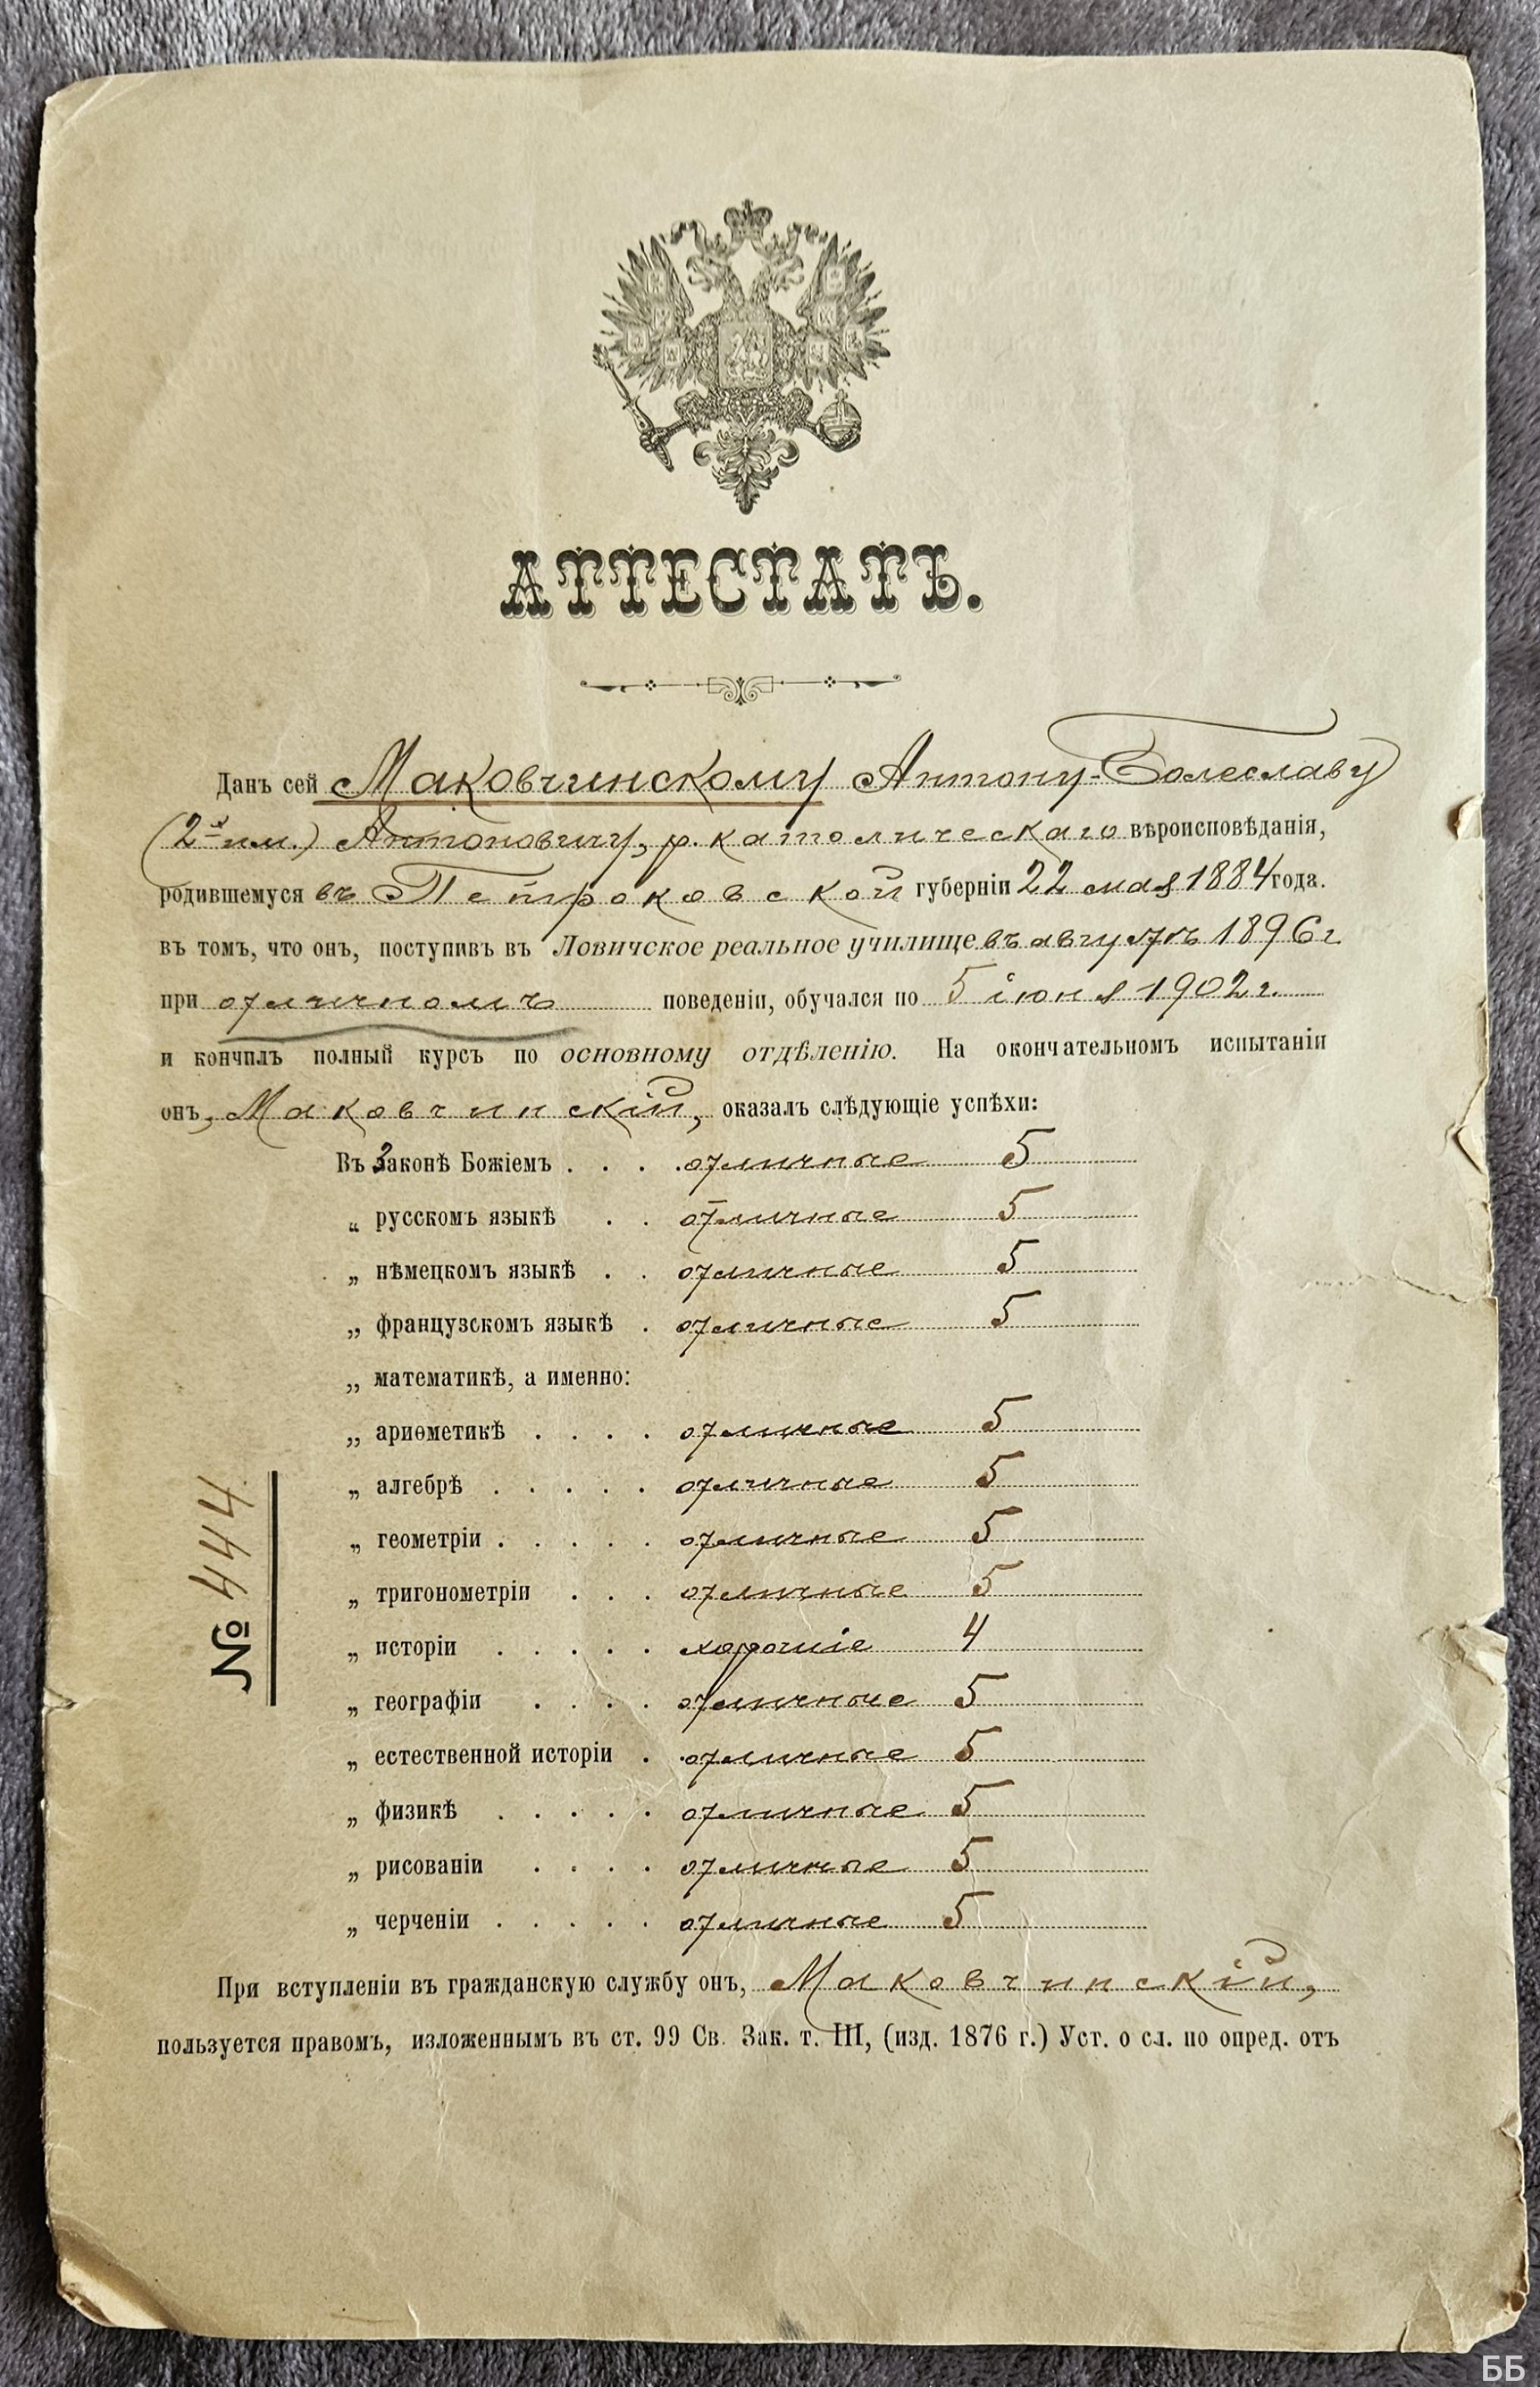 АТТЕСТАТЪ.
Данъ сей Маковчинскому Антону-Болеславу
(2-хъ им.) Антоновичу, р. католическаго вѣроисповѣданія,
родившемуся въ Петроковской губерніи 22 мая 1884 года.
въ томъ, что онъ, поступивъ въ Ловичское реальное училище въ августѣ 1896 г
при отличномъ поведеніи, обучался по 5 іюня 1902 г.
и кончилъ полный курсъ по основному отдѣленію. На окончательномъ испытаніи
онъ, Маковчинскій, оказалъ слѣдующіе успѣхи:
Въ Законѣ Божіемъ . . . . отличные 5
„ русскомъ языкѣ . . отличные 5
„ нѣмецкомъ языкѣ . . отличные 5
„ французскомъ языкѣ . отличные 5
„ математикѣ, а именно:
„ ариѳметикѣ . . . . отличные 5
„ алгебрѣ . . . . . отличные 5
„ геометріи . . . . . отличные 5
„ тригонометріи . . . отличные 5
„ исторіи . . . . . хорошіе 4
„ географіи . . . . отличные 5
„ естественной исторіи . отличные 5
„ физикѣ . . . . . отличные 5
„ рисованіи . . . . отличные 5
„ черченіи . . . . . отличные 5
№ 444
При вступленіи въ гражданскую службу онъ, Маковчинскій,
пользуется правомъ, изложеннымъ въ ст. 99 Св. Зак. т. III, (изд. 1876 г.) Уст. о сл. по опред. отъ
ББ